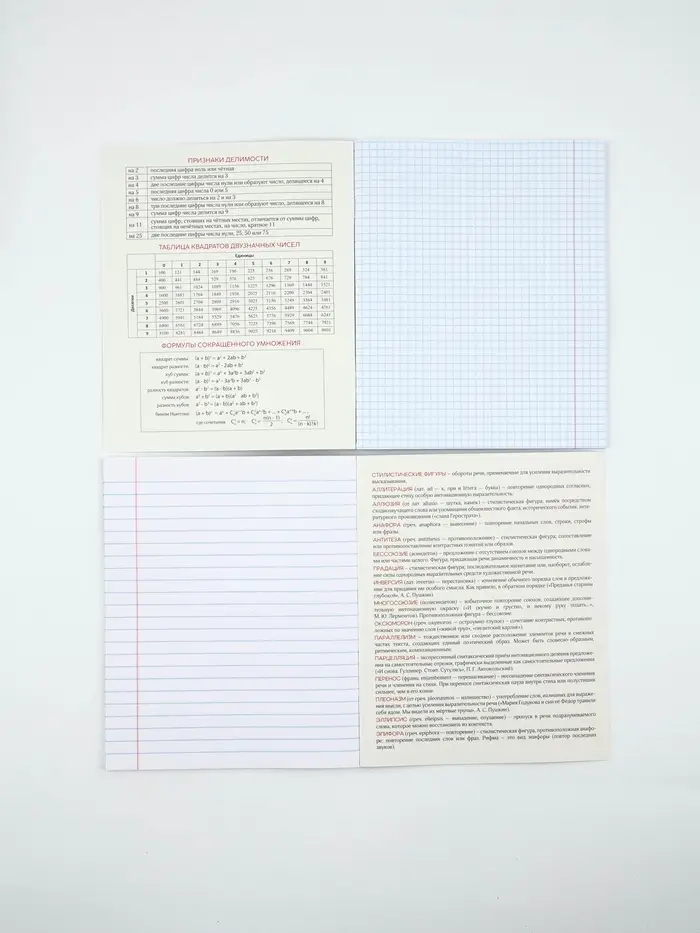 ПРИЗНАКИ ДЕЛИМОСТИ
на 2 последняя цифра ноль или чётная
на 3 сумма цифр делится на 3
на 4 две последние цифры числа нули или образуют число, делящееся на 4
на 5 последняя цифра числа 0 или 5
на 6 число должно делиться на 2 и на 3
на 8 три последние цифры числа нули или образуют число, делящееся на 8
на 9 сумма цифр числа делится на 9
на 11 сумма цифр, стоящих на чётных местах, отличается от суммы цифр,
стоящих на нечётных местах, на число, кратное 11
на 25 две последние цифры числа нули, 25, 50 или 75
ТАБЛИЦА КВАДРАТОВ ДВУЗНАЧНЫХ ЧИСЕЛ
Единицы
0 1 2 3 4 5 6 7 8 9
Десятки
1 100 121 144 169 196 225 256 289 324 361
2 400 441 484 529 576 625 676 729 784 841
3 900 961 1024 1089 1156 1225 1296 1369 1444 1521
4 1600 1681 1764 1849 1936 2025 2116 2209 2304 2401
5 2500 2601 2704 2809 2916 3025 3136 3249 3364 3481
6 3600 3721 3844 3969 4096 4225 4356 4489 4624 4761
7 4900 5041 5184 5329 5476 5625 5776 5929 6084 6241
8 6400 6561 6724 6889 7056 7225 7396 7569 7744 7921
9 8100 8281 8464 8649 8836 9025 9216 9409 9604 9801
ФОРМУЛЫ СОКРАЩЁННОГО УМНОЖЕНИЯ
квадрат суммы (a + b)² = a² + 2ab + b²
квадрат разности (a - b)² = a² - 2ab + b²
куб суммы (a + b)³ = a³ + 3a²b + 3ab² + b³
куб разности (a - b)³ = a³ - 3a²b + 3ab² - b³
разность квадратов a² - b² = (a - b)(a + b)
сумма кубов a³ + b³ = (a + b)(a² - ab + b²)
разность кубов a³ - b³ = (a - b)(a² + ab + b²)
бином Ньютона
где сочетания
СТИЛИСТИЧЕСКИЕ ФИГУРЫ – обороты речи, применяемые для усиления выразительности
высказывания.
АЛЛИТЕРАЦИЯ (лат. ad – к, при и littera – буква) – повторение однородных согласных,
придающее стиху особую интонационную выразительность.
АЛЛЮЗИЯ (от лат. allusio – шутка, намёк) – стилистическая фигура, намёк посредством
сходнозвучащего слова или упоминания общеизвестного факта, исторического события, лите-
ратурного произведения («слава Герострата»).
АНАФОРА (греч. anaphora – вынесение) – повторение начальных слов, строки, строфы
или фразы.
АНТИТЕЗА (греч. antithesis – противоположение) – стилистическая фигура; сопоставление
или противопоставление контрастных понятий или образов.
БЕССОЮЗИЕ (асиндетон) – предложение с отсутствием союзов между однородными слова-
ми или частями целого. Фигура, придающая речи динамичность и насыщенность.
ГРАДАЦИЯ – стилистическая фигура, последовательное нагнетание или, наоборот, ослабле-
ние силы однородных выразительных средств художественной речи.
ИНВЕРСИЯ (лат. inversio – перестановка) – изменение обычного порядка слов в предложе-
нии для придания им особого смысла. Как правило, в обратном порядке («Преданья старины
глубокой», А. С. Пушкин).
МНОГОСОЮЗИЕ (полисиндетон) – избыточное повторение союзов, создающее дополни-
тельную интонационную окраску («И скучно и грустно, и некому руку подать...»,
М. Ю. Лермонтов). Противоположная фигура – бессоюзие.
ОКСЮМОРОН (греч. oxymoron – остроумно-глупое) – сочетание контрастных, противопо-
ложных по значению слов («живой труп», «гигантский карлик»).
ПАРАЛЛЕЛИЗМ – тождественное или сходное расположение элементов речи в смежных
частях текста, создающих единый поэтический образ. Может быть словесно-образным,
ритмическим, композиционным.
ПАРЦЕЛЛЯЦИЯ – экспрессивный синтаксический приём интонационного деления предложе-
ния на самостоятельные отрезки, графически выделенные как самостоятельные предложения
ПЕРЕНОС (франц. enjambement – перешагивание) – несовпадение синтаксического членения
речи и членения на стихи. При переносе синтаксическая пауза внутри стиха или полустишия
сильнее, чем в его конце.
ПЛЕОНАЗМ (от греч. pleonasmos – излишество) – употребление слов, излишних для выраже-
ния мысли, с целью усиления выразительности речи («Мария Годунова и сын её Фёдор травили
себя ядом. Мы видели их мёртвые трупы», А. С. Пушкин).
ЭЛЛИПСИС (греч. elleipsis – выпадение, опущение) – пропуск в речи подразумеваемого
слова, которое можно восстановить из контекста.
ЭПИФОРА (греч. epiphora – повторение) – стилистическая фигура, противоположная анафо-
ре: повторение последних слов или фраз. Рифма – это вид эпифоры (повтор последних
звуков).